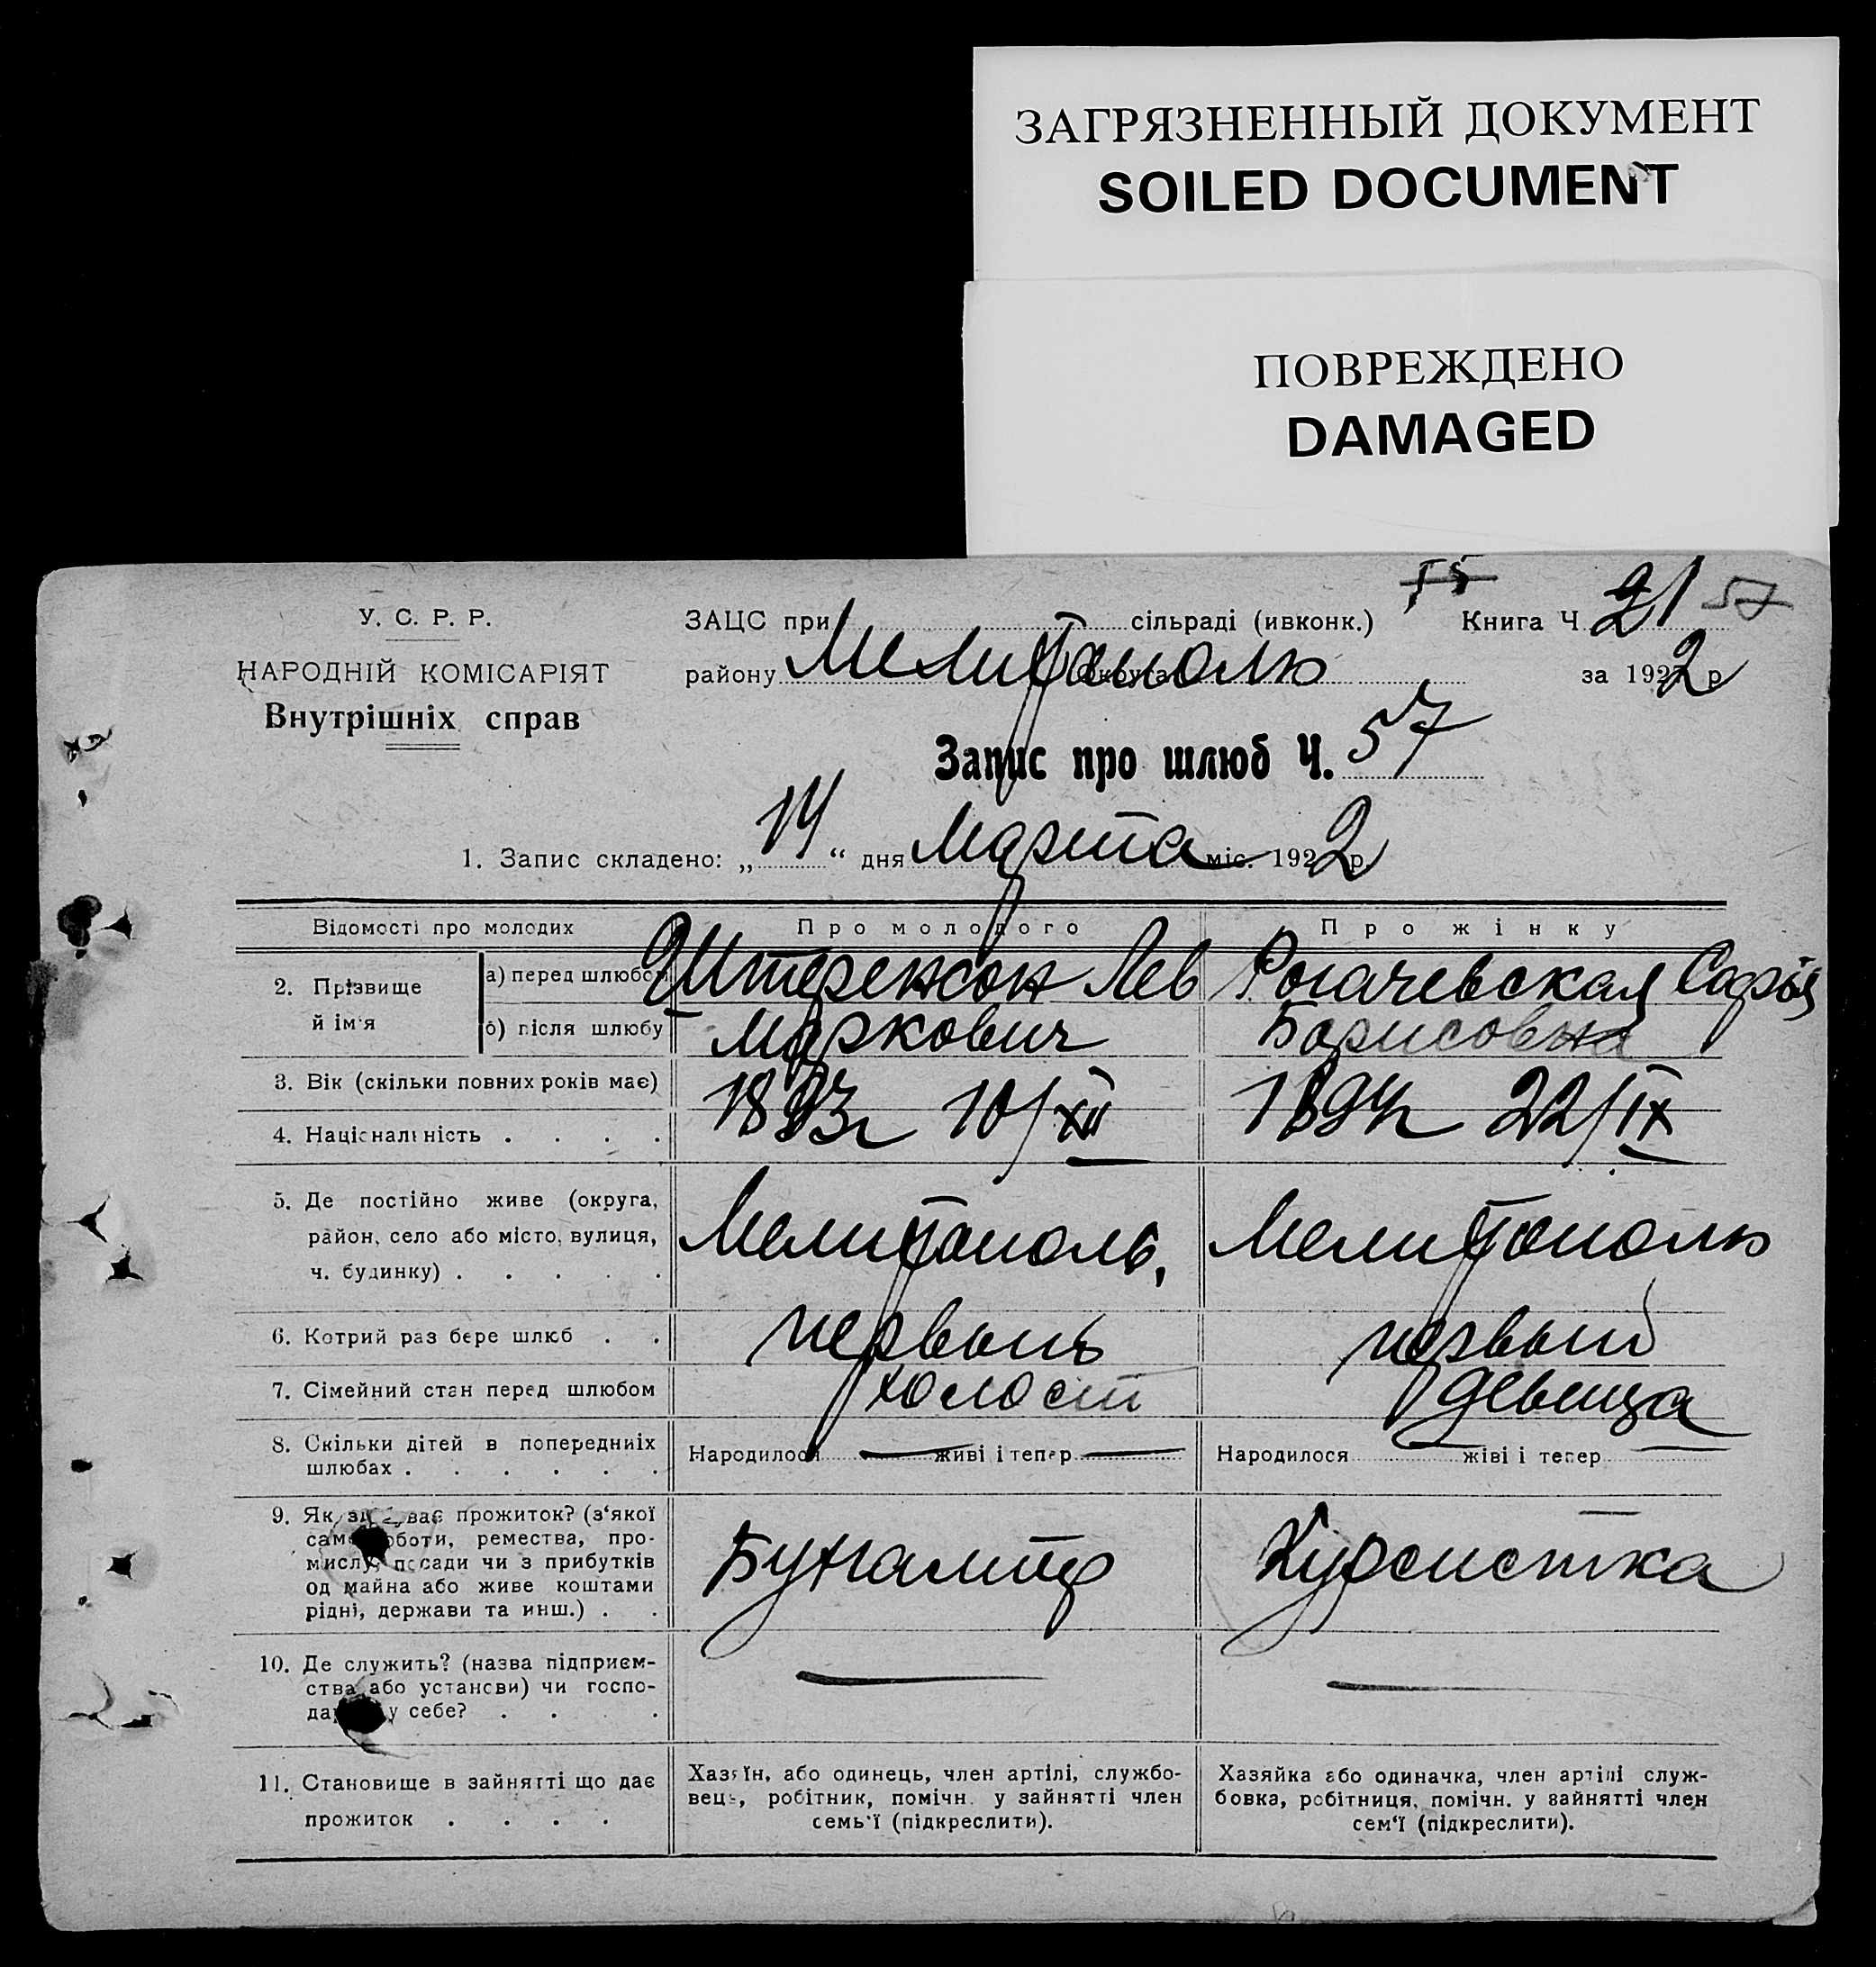 ЗАГРЯЗНЕННЫЙ ДОКУМЕНТ
SOILED DOCUMENT
ПОВРЕЖДЕНО
DAMAGED
У. С. Р. Р.
НАРОДНІЙ КОМІСАРІЯТ
Внутрішніх справ
ЗАЦС при сільраді (ивконк.) Книга Ч 21 57
району Мелитополь за 1922 р
Запис про шлюб Ч. 57
1. Запис складено: „14“ дня Марта міс. 1922 р.
Відомості про молодих Про молодого Про жінку
2. Прізвище й ім'я
а) перед шлюбом Штеренсон Лев Рогачевская
б) після шлюбу Маркович Борисовна
3. Вік (скільки повних років має) 1893 г 10/XII 1894 г 22/IX
4. Національність . . . .
5. Де постійно живе (округа,
район, село або місто, вулиця, Мелитополь, Мелитополь
ч. будинку) . . . . .
6. Котрий раз бере шлюб . . первый первый
7. Сімейний стан перед шлюбом холост девица
8. Скільки дітей в попередніх Народилося — живі і тепер — Народилося — живі і тепер —
шлюбах . . . . . .
9. Як здобуває прожиток? (з'якої
саме роботи, ремества, про-
мислу, посади чи з прибутків Бухгалтер Курсистка
од майна або живе коштами
рідні, держави та инш.) . .
10. Де служить? (назва підприєм-
ства або установи) чи госпо- — —
дарює у себе? . . . .
11. Становище в зайнятті що дає
прожиток . . . .
Хазяїн, або одинець, член артілі, службо-
вець, робітник, помічн. у зайнятті член
семь'ї (підкреслити).
Хазяйка або одиначка, член артілі служ-
бовка, робітниця, помічн. у зайнятті член
сем'ї (підкреслити).